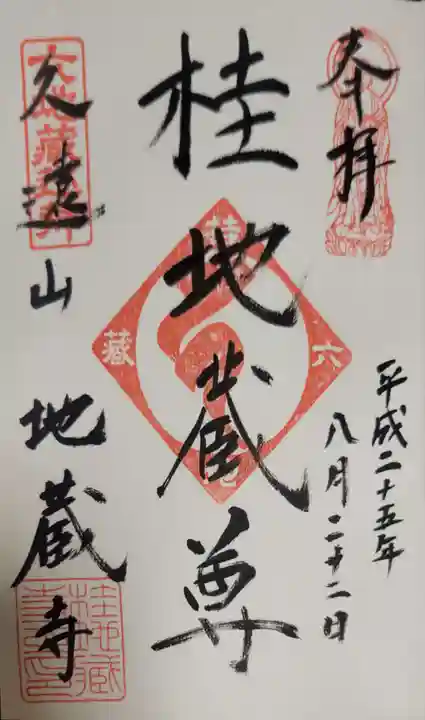 奉拝
平成二十五年
八月二十二日
桂地蔵尊
久遠山
地蔵寺
六
蔵